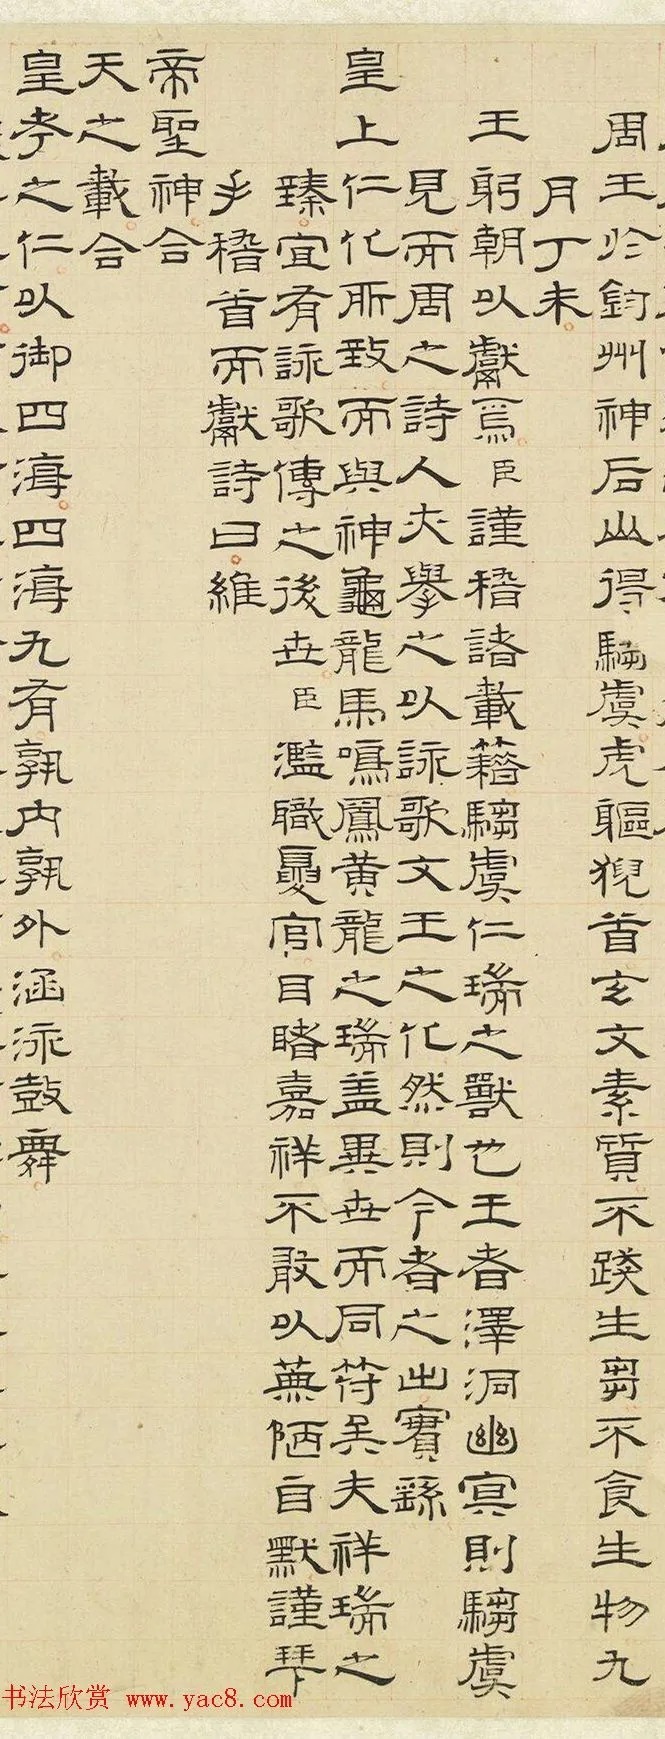 周王於鈞州神后山得騶虞虎軀猊首玄文素質不踐生芻不食生物九
月丁未
王躬朝以獻焉臣謹稽諸載籍騶虞仁瑞之獸也王者澤洞幽冥則騶虞
見而周之詩人夫舉之以詠歌文王之化然則今者之出實繇
皇上仁化所致而與神龜龍馬鳴鳳黃龍之瑞盖異世而同符矣夫祥瑞之
臻宜有詠歌傳之後世臣濫職憂官目睹嘉祥不敢以蕪陋自默謹拜
手稽首而獻詩曰維
帝聖神合
天之載合
皇考之仁以御四海四海九有孰內孰外涵泳鼓舞
书法欣赏 www.yac8.com